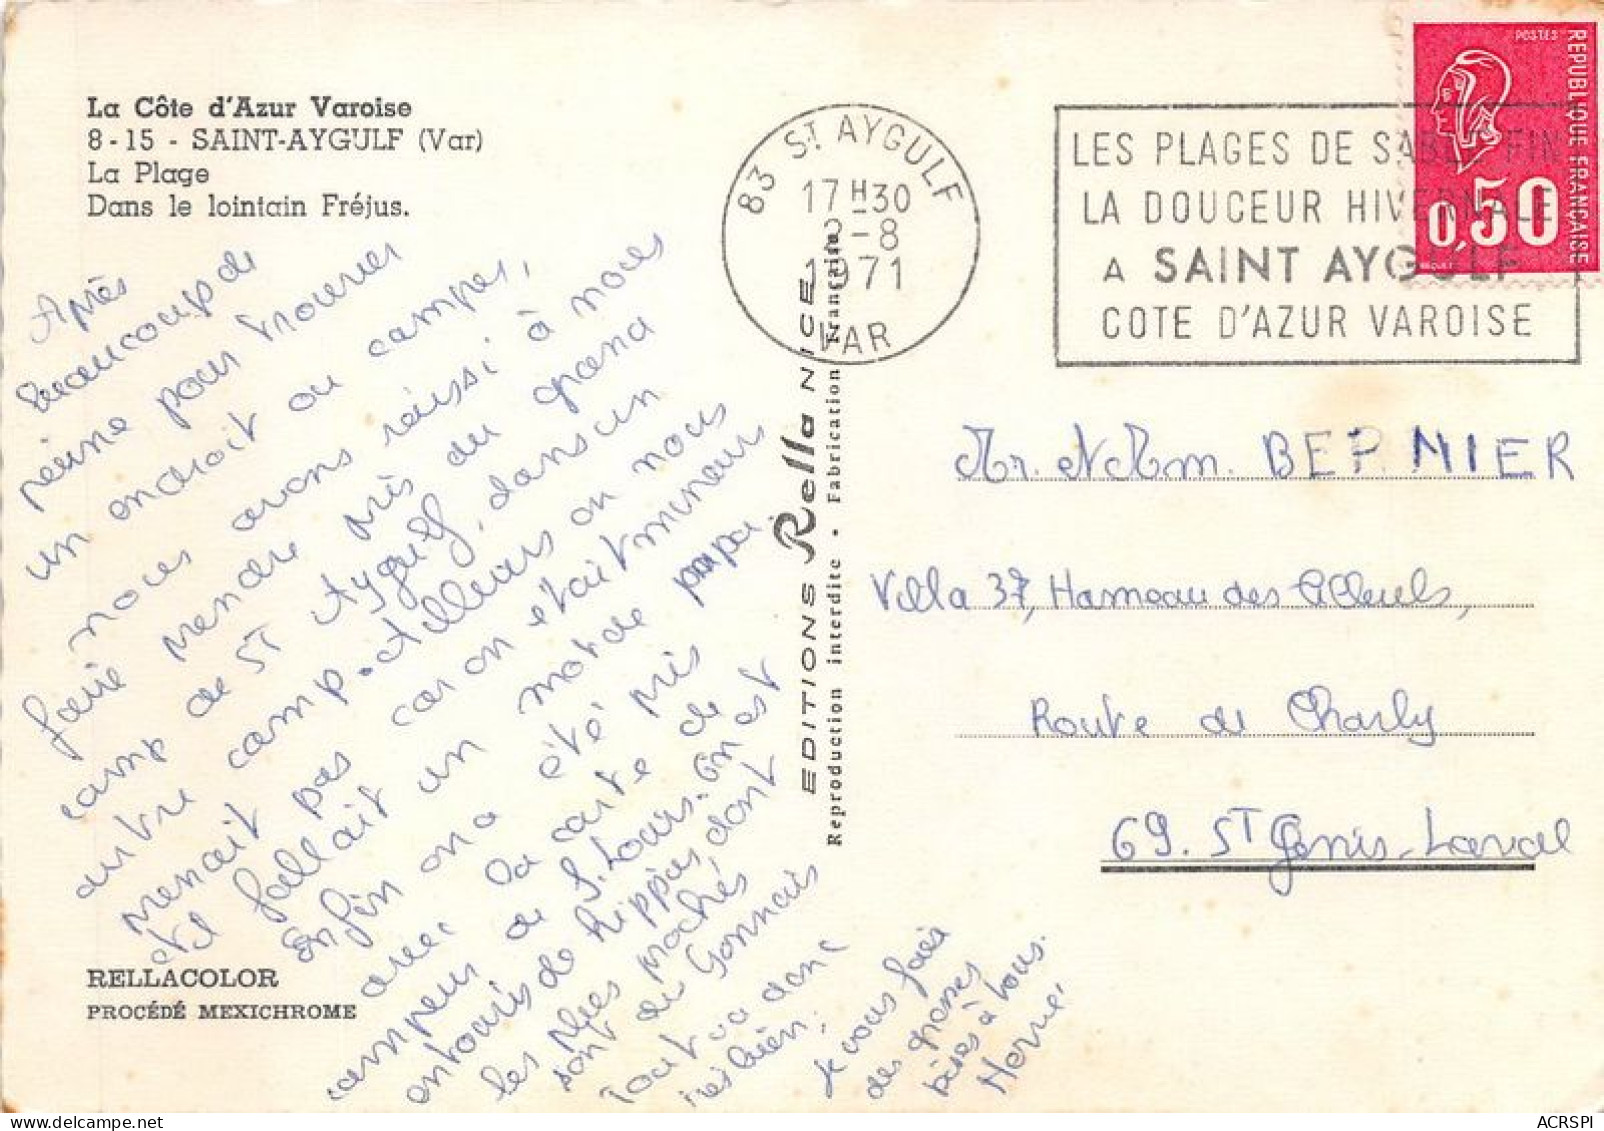 La Côte d'Azur Varoise
8-15 - SAINT-AYGULF (Var)
La Plage
Dans le lointain Fréjus.
Après
beaucoup de
peine pour trouver
un endroit ou camper,
nous avons réussi à nous
faire prendre près du grand
camp de ST Aygulf, dans un
autre camp. Ailleurs on nous
prenait pas car on était mineurs
et il fallait un mot de papa.
Enfin on a été pris
avec la carte de
campeur de J. Louis. On est
entouris de hippies dont
les plus prochés
sont du Gonnais
Tout va donc
tres bien,
je vous fais
des grosses
bises à tous.
Hervé
RELLACOLOR
PROCÉDÉ MEXICHROME
EDITIONS Rella NICE
Reproduction interdite • Fabrication Française
83 ST AYGULF
17H30
2-8
1971
VAR
LES PLAGES DE SABLE FIN
LA DOUCEUR HIVERNALE
A SAINT AYGULF
COTE D'AZUR VAROISE
POSTES
REPUBLIQUE FRANÇAISE
0,50
Mr. et Mm. BERNIER
Villa 37, Hameau des Tilleuls,
Route de Charly
69. ST Genis-Laval
ACRSPI